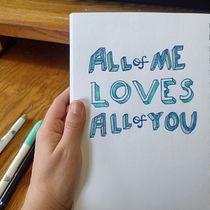 ALL of ME
LOVES
ALL of YOU